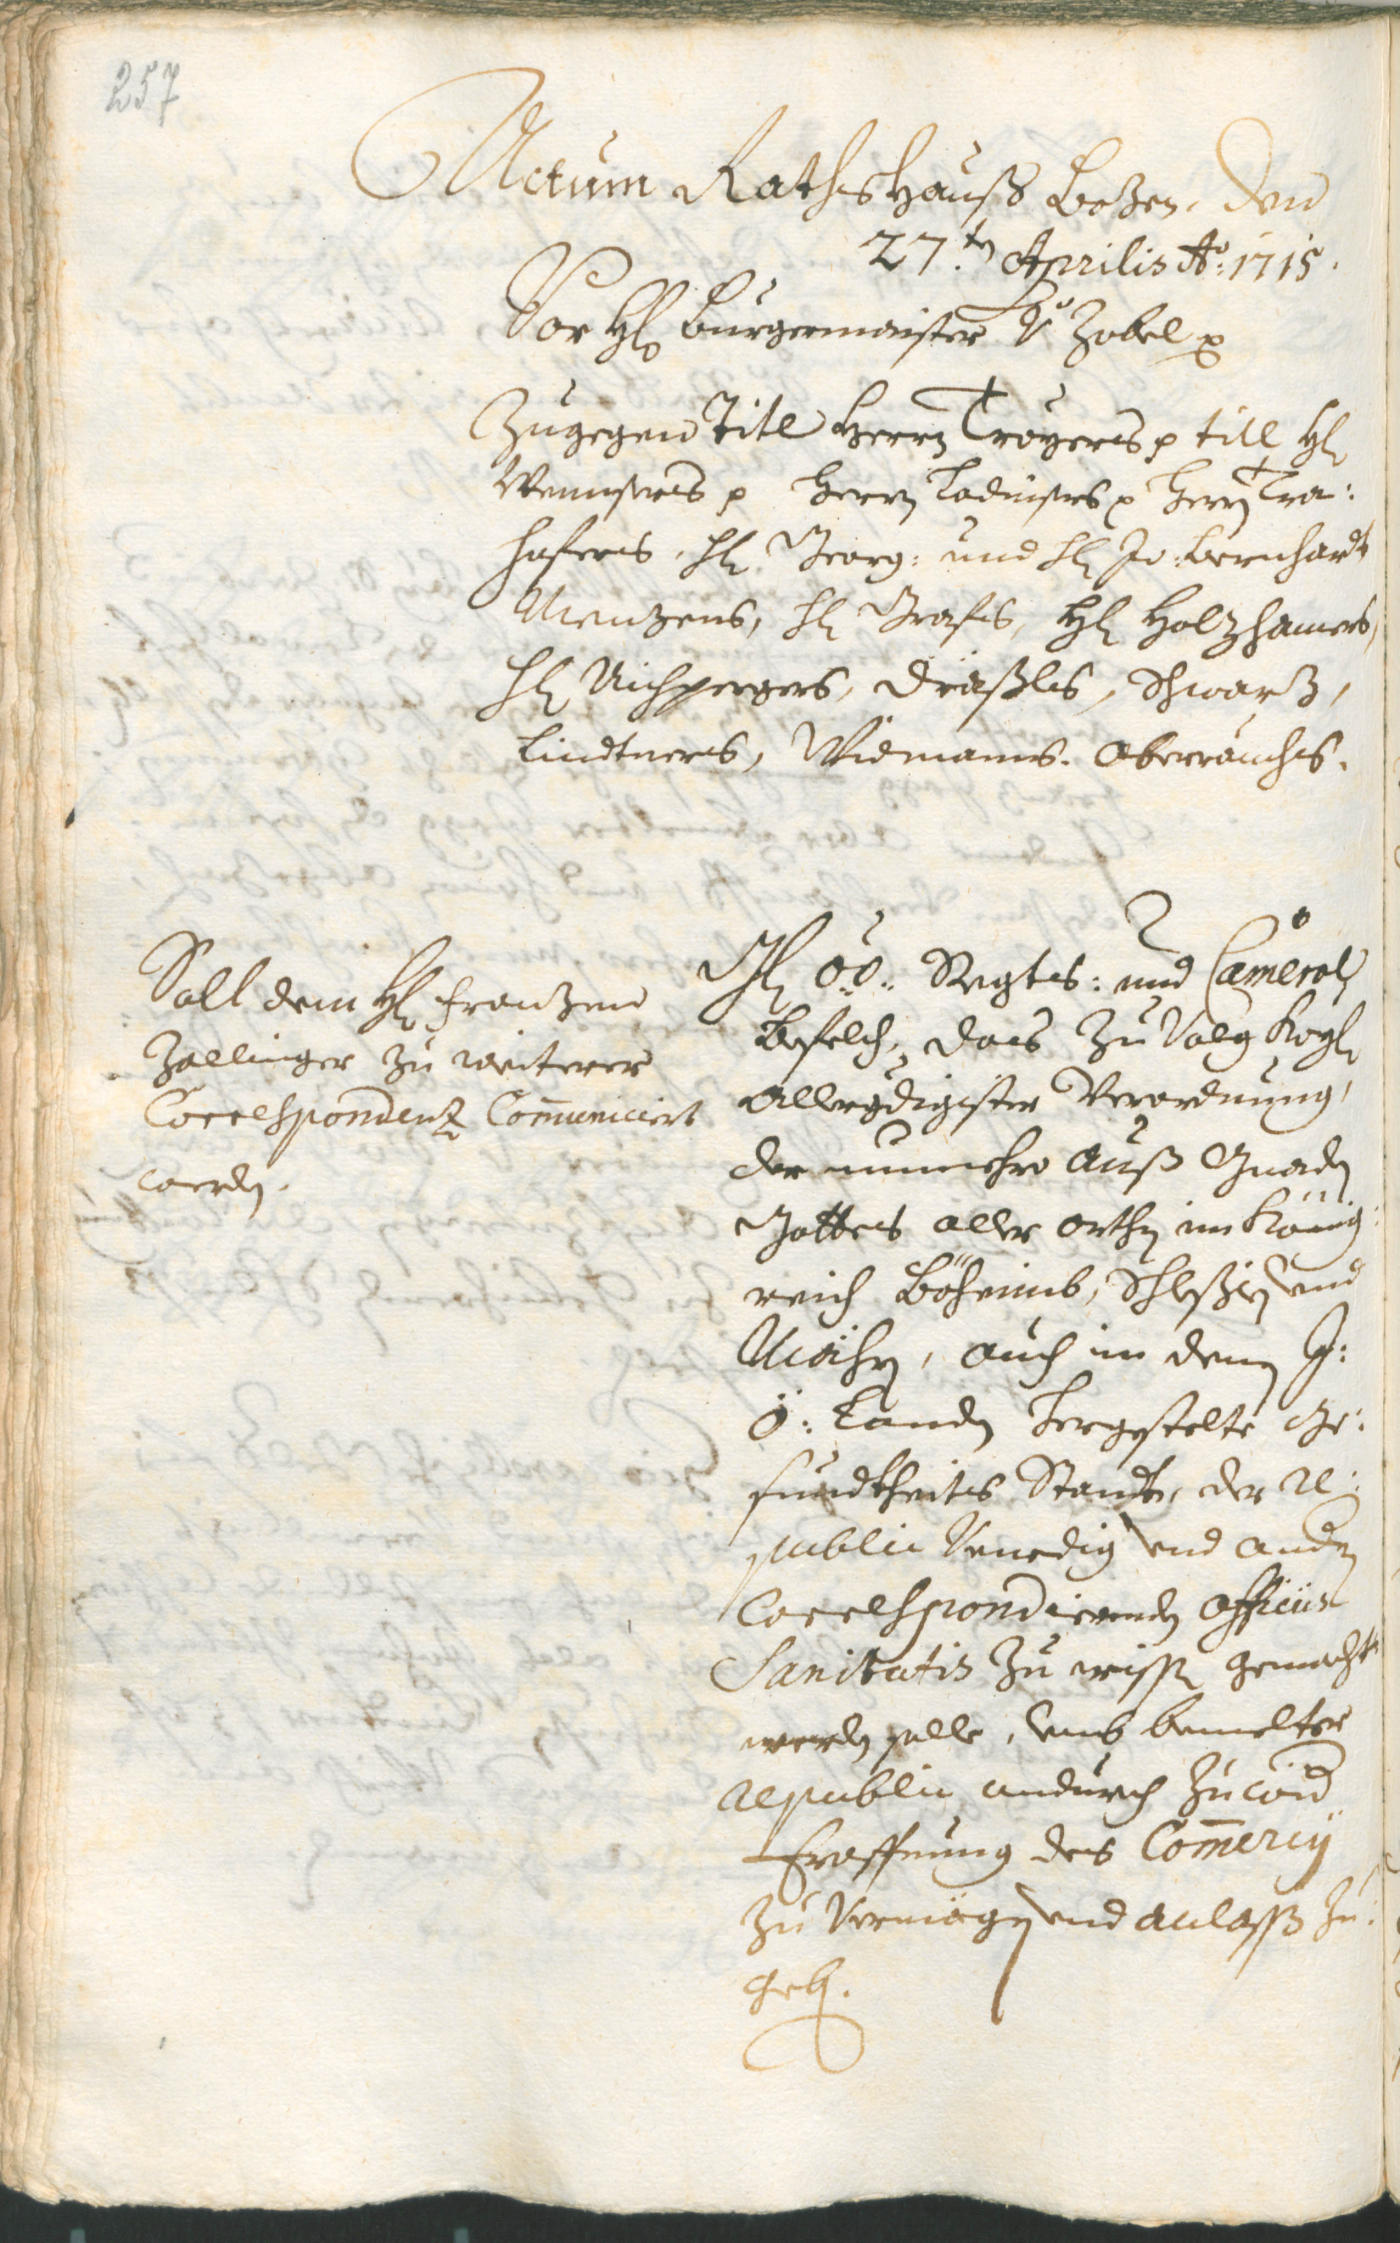 257
Actum Rathshauß Bozen, den
27.ten Aprilis Ao: 1715.
Vor Hl Burgermaister Zobel p
Zugegen Titl Herrn Troyers p titl Hl
Wennsers p Herrn Ladinsers p Herrn Tra:
hofers, Hl Georg: und Hl Jo: Bernhardt
Menzens, Hl Grafs, Hl Holzhamers,
Hl Aichpergers, Dräxls, Schwartz,
Lindtners, Widmans. Oberrauchs.
Soll dem Hl Franzen
Zallinger zu weiterer
Correspondenz Communiciert
werdn.
Hl OÖ: Regts: und Cameral
Befelch, das zu Volg Kayl
Allergdigister Verordnung,
der nunmehro auß Gnadn
Gottes aller orthn im König:
reich Böheimb, Schlesien und
Mähren, auch in denen I:
Ö: Landn hergestelte Ge:
sundtheits Standt, der Re:
public Venedig und andern
Correspondierendn Officiis
Sanitatis zu wissen gemacht
werdn solle, umb bemelter
Republic andurch zu
Eroffnung des Comercij
zu vermögen und anlaß zu:
gebn.